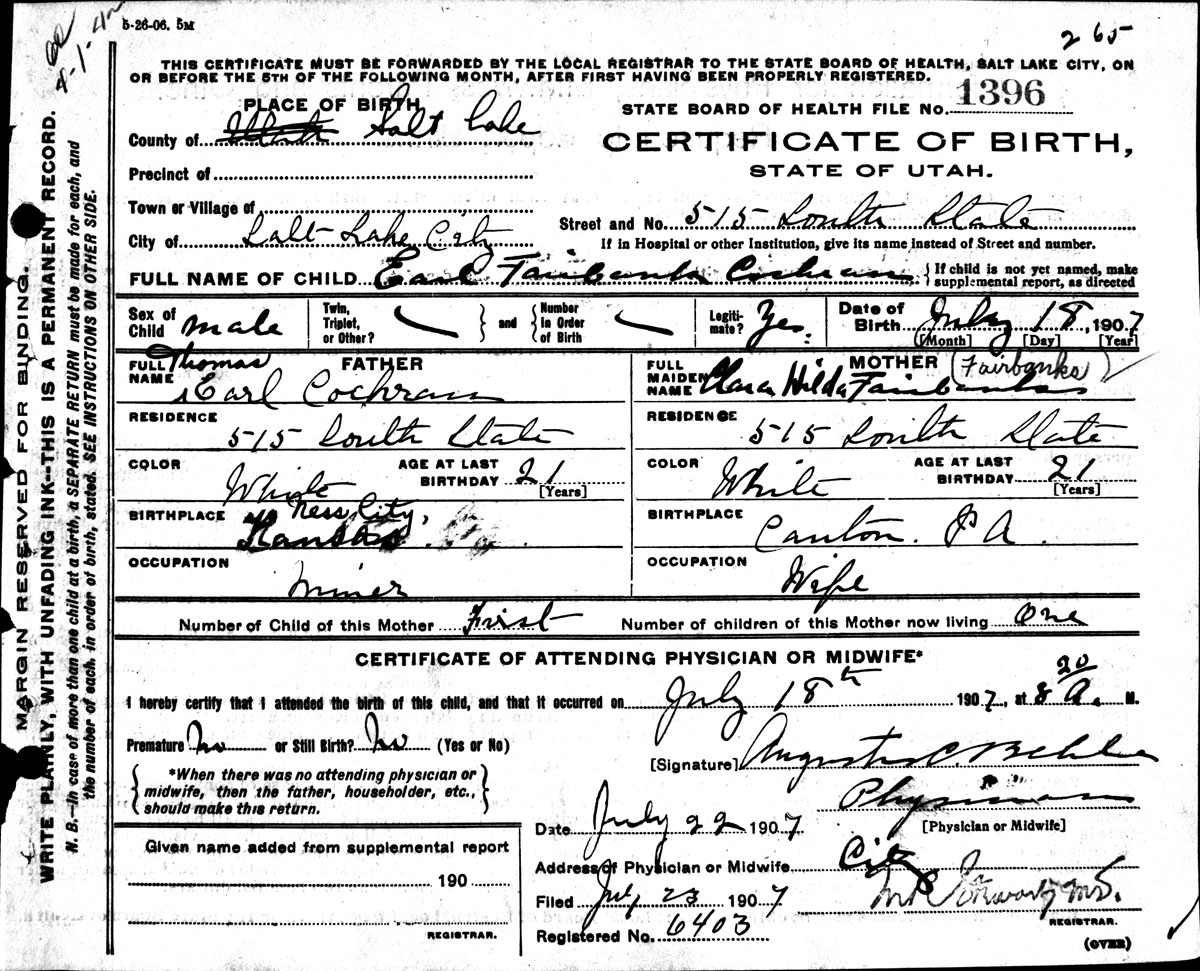 5-26-06. 5M
265
THIS CERTIFICATE MUST BE FORWARDED BY THE LOCAL REGISTRAR TO THE STATE BOARD OF HEALTH, SALT LAKE CITY, ON
OR BEFORE THE 5TH OF THE FOLLOWING MONTH, AFTER FIRST HAVING BEEN PROPERLY REGISTERED.
PLACE OF BIRTH
STATE BOARD OF HEALTH FILE No. 1396
County of Utah Salt Lake
CERTIFICATE OF BIRTH,
STATE OF UTAH.
Precinct of
Town or Village of
Street and No. 515 South State
City of Salt Lake City
If in Hospital or other Institution, give its name instead of Street and number.
FULL NAME OF CHILD Earl Fairbanks Cochran { If child is not yet named, make supplemental report, as directed
Sex of Child male
Twin, Triplet, or Other? } and { Number in Order of Birth
Legitimate? Yes.
Date of Birth July 18, 1907
[Month] [Day] [Year]
FATHER
FULL NAME Thomas Earl Cochran
MOTHER (Fairbanks)
FULL MAIDEN NAME Clara Hilda Fairbanks
RESIDENCE 515 South State
RESIDENCE 515 South State
COLOR White AGE AT LAST BIRTHDAY 21 [Years]
COLOR White AGE AT LAST BIRTHDAY 21 [Years]
BIRTHPLACE Ness City, Kansas
BIRTHPLACE Canton. PA.
OCCUPATION miner
OCCUPATION Wife
Number of Child of this Mother First Number of children of this Mother now living One
CERTIFICATE OF ATTENDING PHYSICIAN OR MIDWIFE*
I hereby certify that I attended the birth of this child, and that it occurred on July 18th 1907, at 8 20 A. M.
Premature? No or Still Birth? No (Yes or No)
[Signature] Augustus C. Behle
{ *When there was no attending physician or
midwife, then the father, householder, etc.,
should make this return. }
Physician
[Physician or Midwife]
Date July 22 1907
Given name added from supplemental report
190
REGISTRAR.
Address of Physician or Midwife City
Filed July 23 1907
REGISTRAR.
Registered No. 6403
(OVER)
MARGIN RESERVED FOR BINDING.
WRITE PLAINLY, WITH UNFADING INK--THIS IS A PERMANENT RECORD.
N. B.—In case of more than one child at a birth, a SEPARATE RETURN must be made for each, and
the number of each, in order of birth, stated. SEE INSTRUCTIONS ON OTHER SIDE.